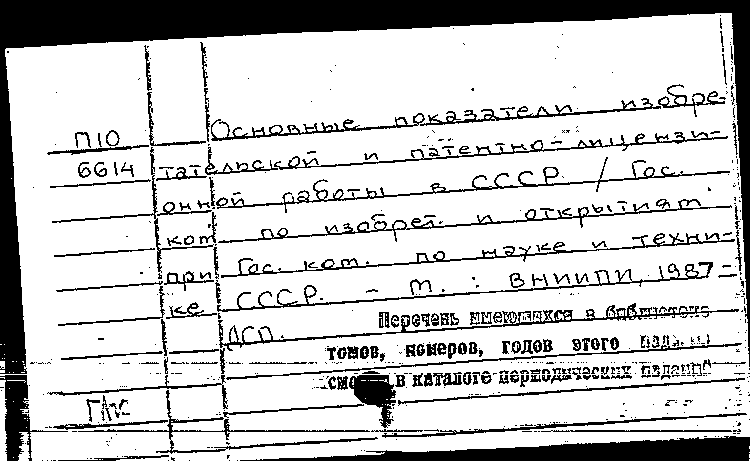 П10 Основные показатели изобре-
6614 тательской и патентно-лицензи-
онной работы в СССР / Гос.
ком. по изобрет. и открытиям
при Гос. ком. по науке и техни-
ке СССР. – М. : ВНИИПИ, 1987-
ДСП. Перечень имеющихся в библиотеке
томов, номеров, годов этого
в каталоге периодических изданий